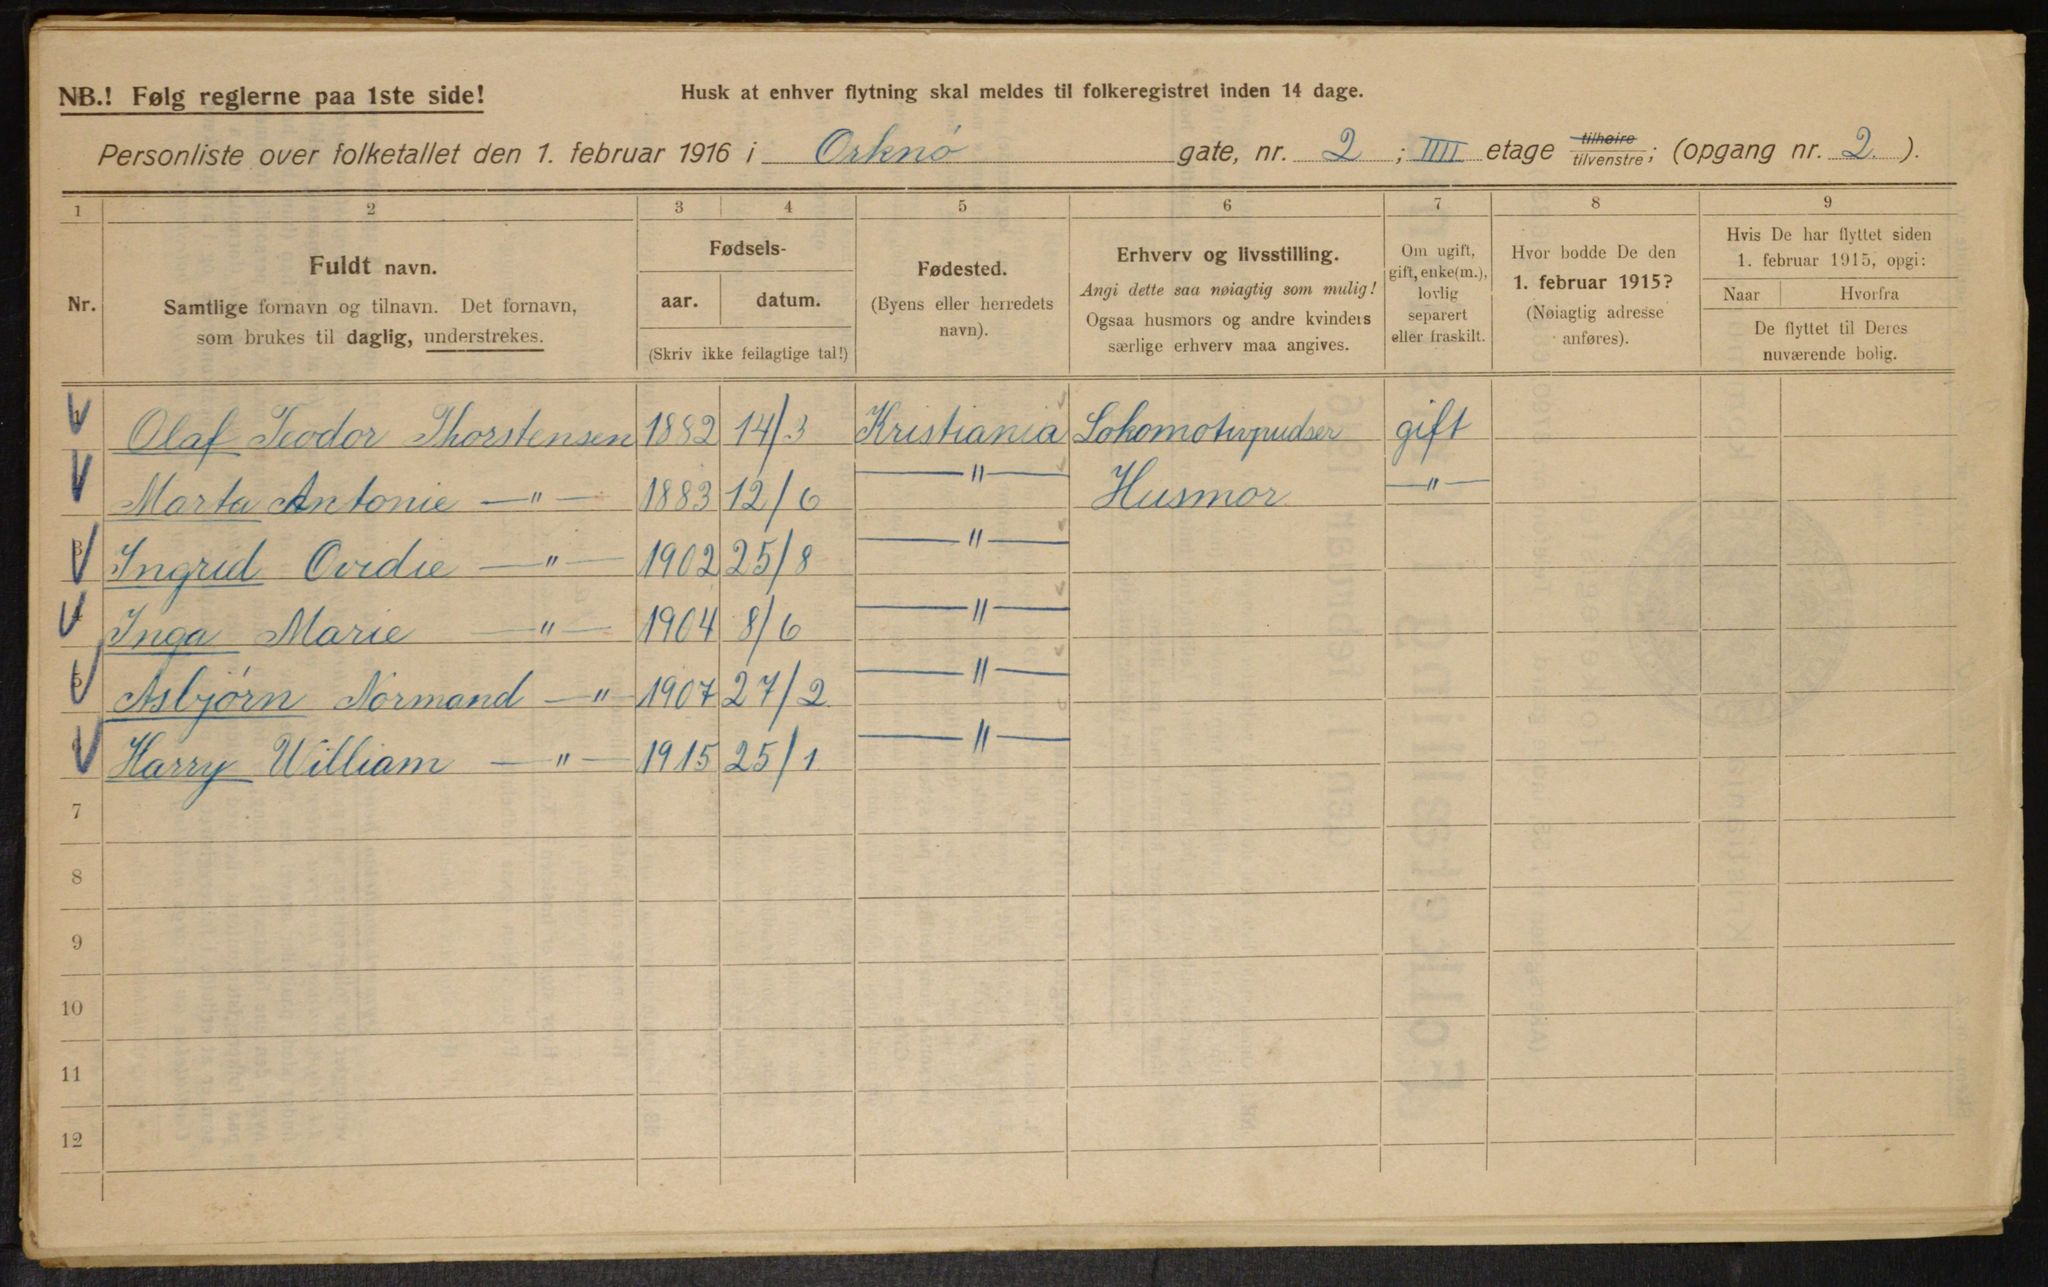 NB.! Følg reglerne paa 1ste side!
Husk at enhver flytning skal meldes til folkeregistret inden 14 dage.
Personliste over folketallet den 1. februar 1916 i Orknö gate, nr. 2 ; IIII etage tilhøire tilvenstre; (opgang nr. 2. ).
1 2 3 4 5 6 7 8 9
Nr.
Fuldt navn.
Samtlige fornavn og tilnavn. Det fornavn,
som brukes til daglig, understrekes.
Fødsels-
aar. datum.
(Skriv ikke feilagtige tal!)
Fødested.
(Byens eller herredets
navn).
Erhverv og livsstilling.
Angi dette saa nøiagtig som mulig!
Ogsaa husmors og andre kvinders
særlige erhverv maa angives.
Om ugift,
gift, enke(m.),
lovlig
separert
eller fraskilt.
Hvor bodde De den
1. februar 1915?
(Nøiagtig adresse
anføres).
Hvis De har flyttet siden
1. februar 1915, opgi:
Naar Hvorfra
De flyttet til Deres
nuværende bolig.
Olaf Teodor Thorstensen 1882 14/3 Kristiania Lokomotivpudser gift
Marta Antonie —"— 1883 12/6 —"— Husmor —"—
3 Ingrid Ovidie —"— 1902 25/8 —"—
4 Inga Marie —"— 1904 8/6 —"—
5 Asbjørn Normand —"— 1907 27/2 —"—
Harry William —"— 1915 25/1 —"—
7
8
9
10
11
12